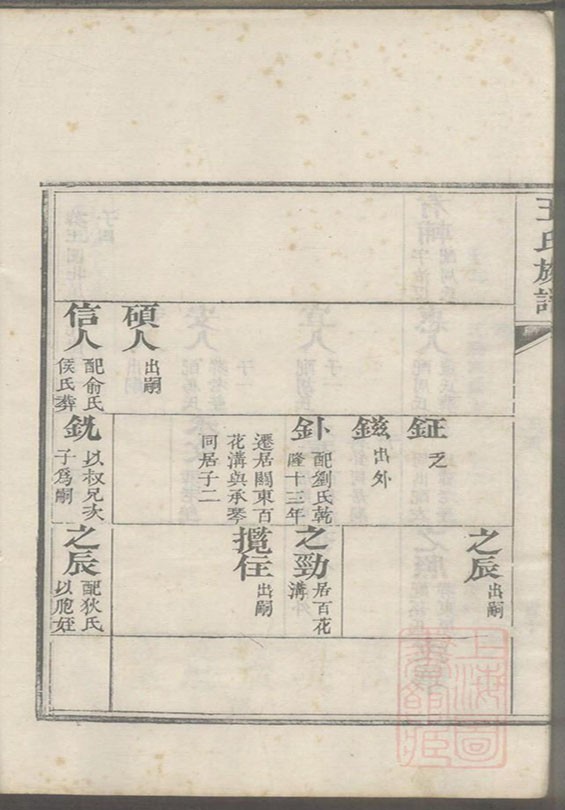 王氏族譜
碩人 出嗣
信人 配俞氏
侯氏葬
鉦 乏
鎡 出外
釙 配劉氏乾
隆十三年
遷居關東百
花溝與承琴
同居子二
銑 以叔兄次
子爲嗣
之辰 出嗣
之勁 居百花
溝
攬住 出嗣
之辰 配狄氏
以胞姪